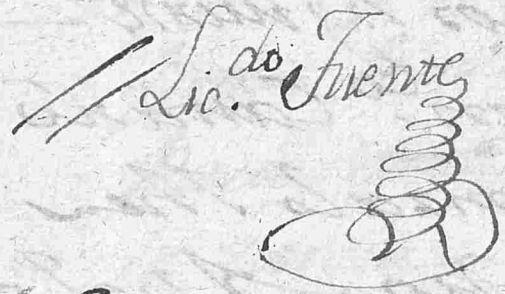 // Lic.do Fuente